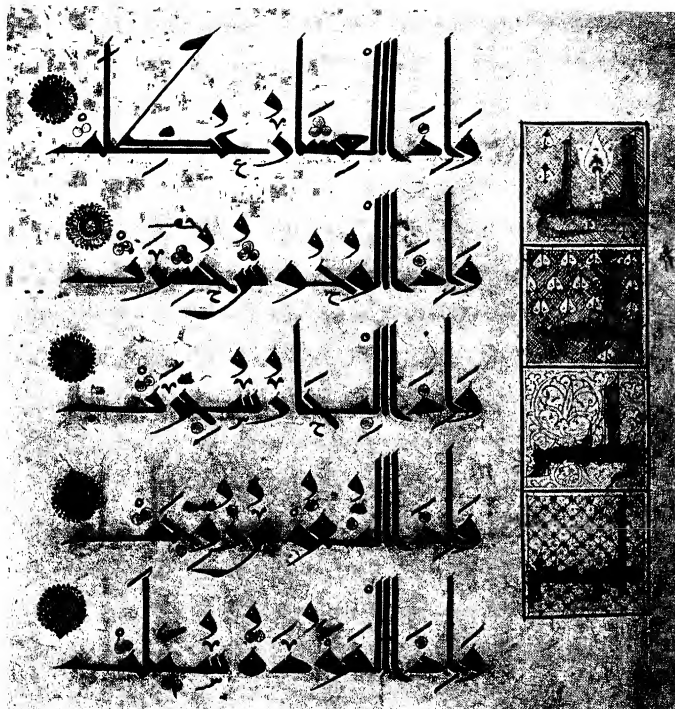 وَإِذَا الْعِشَارُ عُطِّلَتْ
وَإِذَا الْوُحُوشُ حُشِرَتْ
وَإِذَا الْبِحَارُ سُجِّرَتْ
وَإِذَا النُّفُوسُ زُوِّجَتْ
وَإِذَا الْمَوْءُودَةُ سُئِلَتْ